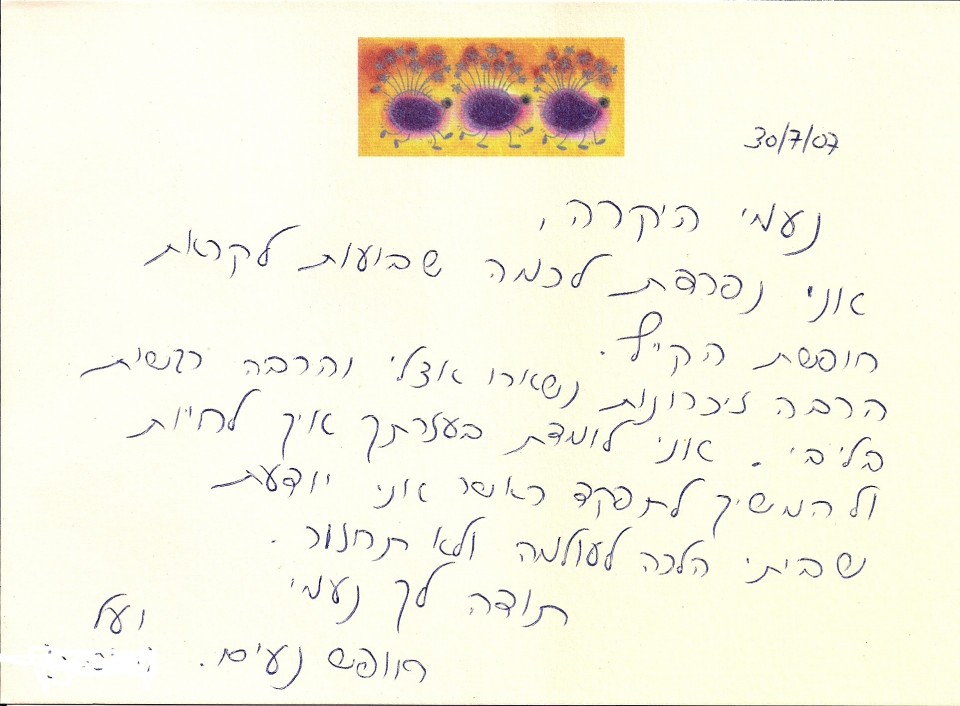 30/7/07
נעמי היקרה,
אני נפרדת לכמה שבועות לקראת
חופשת הקיץ.
הרבה זיכרונות נשארו אצלי והרבה רגשית
בליבי. אני לומדת בעזרתך איך לחיות
ולהמשיך לתפקד כאשר אני יודעת
שביתי הלכה לעולמה ולא תחזור.
תודה לך נעמי
ועל
חופש נעים.